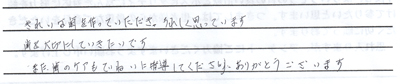 きれいな歯を作っていただき、うれしく思っています
歯を大切にしていきたいです
また、歯のケアもていねいに指導してくださり、ありがとうございます